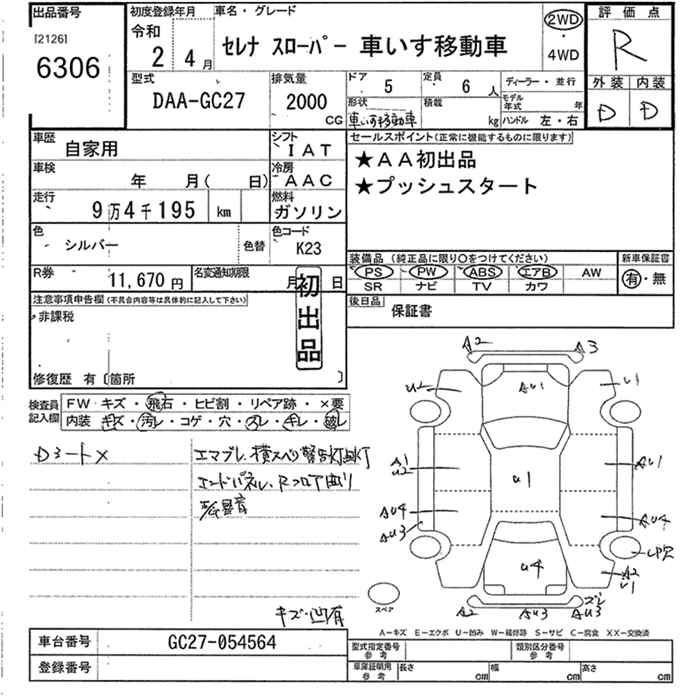 出品番号
[2126]
6306
初度登録年月
令和
2 4月
車名・グレード
セレナ スローパー 車いす移動車
2WD
・
4WD
評価点
R
外装 内装
D D
型式
DAA-GC27
排気量
2000
CC
ドア
5
定員
6人
形状
車いす移動車
積載
kg
ディーラー・並行
モデル年式 年
ハンドル 左・右
車歴
自家用
シフト
IAT
車検
年 月( 日)
冷房
AAC
走行
9万4千195 km
燃料
ガソリン
色
シルバー
色替
色コード
K23
R券
11,670円
名変通知期限
月 日
セールスポイント(正常に機能するものに限ります)
★AA初出品
★プッシュスタート
装備品(純正品に限り○をつけてください)
PS PW ABS エアB AW
SR ナビ TV カワ
新車保証書
有・無
後日品
保証書
注意事項申告欄(不具合内容等は具体的に記入して下さい)
非課税
初出品
修復歴 有〔箇所 〕
検査員記入欄
FW キズ・飛石・ヒビ割・リペア跡・×要
内装・キズ・汚レ・コゲ・穴・スレ・キレ・破レ
Dシート×
エンドパネル、Rフロア曲り
キズ・凹有
A2 A3
U2 AU1 U1
A1 U2 U1 AU1
AU4 AU3 AU4
U4
A2 U1
A2 AU3 AU3
スペア
A-キズ E-エクボ U-凹み W-補修跡 S-サビ C-腐食 XX-交換済
車台番号
GC27-054564
登録番号
型式指定番号 参考
類別区分番号 参考
車庫証明用 参考
長さ cm
幅 cm
高さ cm